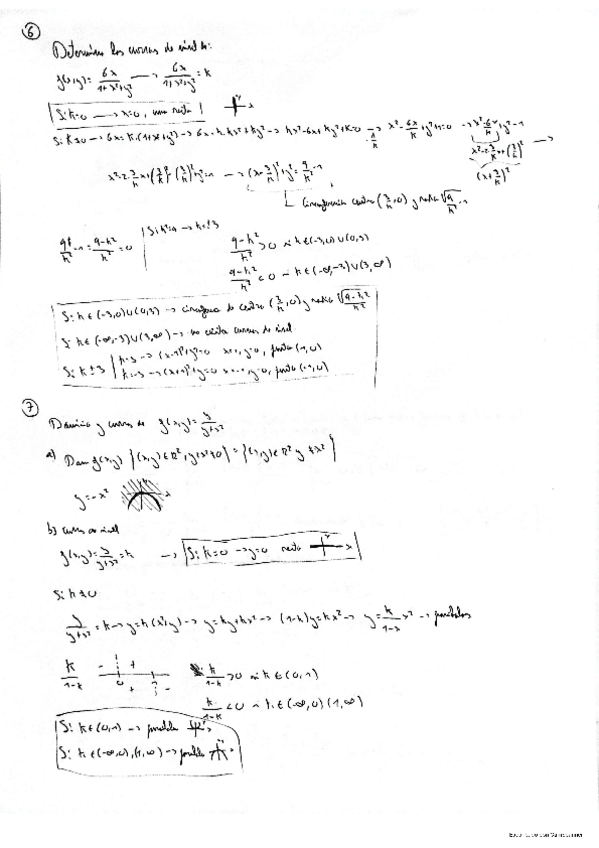 6
Determina las curvas de nivel de:
f(x,y)= 6x/(1+x²+y²) → 6x/(1+x²+y²) = k
Si k=0 → x=0, una recta
Si k≠0 → 6x = k·(1+x²+y²) → 6x = k+kx²+ky² → kx²-6x+ky²+k=0 → x²-6x/k+y²+1=0
x²-2·3/k x+(3/k)²-(3/k)²+y²=-1 → (x-3/k)²+y²=9/k²-1
Circunferencia centro (3/k,0) y radio √(9/k²-1)
9/k²-1=(9-k²)/k²=0 Si k²=9 → k=±3
(9-k²)/k²>0 si k∈(-3,0)∪(0,3)
(9-k²)/k²<0 si k∈(-∞,-3)∪(3,∞)
Si k∈(-3,0)∪(0,3) → circunferencia de centro (3/k,0) y radio √((9-k²)/k²)
Si k∈(-∞,-3)∪(3,∞) → no existen curvas de nivel
Si k=±3 k=3 → (x-1)²+y²=0 x=1, y=0, punto (1,0)
k=-3 → (x+1)²+y²=0 x=-1, y=0, punto (-1,0)
7
Dominio y curvas de f(x,y)= y/(y+x²)
a) Dom f(x,y) {(x,y)∈ℝ², y+x²≠0} = {(x,y)∈ℝ² y≠-x²}
y=-x²
b) curvas de nivel
f(x,y)= y/(y+x²)=k → Si k=0 → y=0 recta
Si k≠0
y/(y+x²)=k → y=k(x²+y) → y=ky+kx² → (1-k)y=kx² → y= k/(1-k) x² → parábolas
k/(1-k)
k/(1-k)>0 si k∈(0,1)
k/(1-k)<0 si k∈(-∞,0)(1,∞)
Si k∈(0,1) → parábola
Si k∈(-∞,0),(1,∞) → parábola